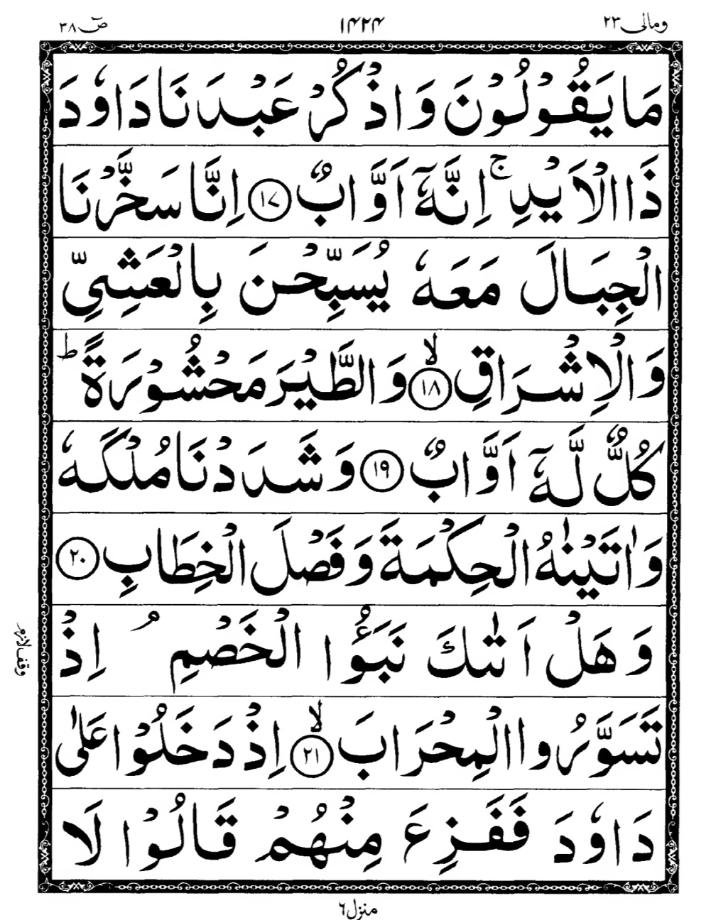 ومالى ٢٣ ١٤٢٤ صٓ ٣٨
مَا يَقُوْلُوْنَ وَاذْكُرْ عَبْدَنَا دَاوٗدَ
ذَا الْاَيْدِ ۚ اِنَّهٗۤ اَوَّابٌ ﴿١٧﴾ اِنَّا سَخَّرْنَا
الْجِبَالَ مَعَهٗ يُسَبِّحْنَ بِالْعَشِيِّ
وَالْاِشْرَاقِ ﴿١٨﴾ۙ وَالطَّيْرَ مَحْشُوْرَةً ؕ
كُلٌّ لَّهٗۤ اَوَّابٌ ﴿١٩﴾ وَشَدَدْنَا مُلْكَهٗ
وَاٰتَيْنٰهُ الْحِكْمَةَ وَفَصْلَ الْخِطَابِ ﴿٢٠﴾
وَهَلْ اَتٰىكَ نَبَؤُا الْخَصْمِ ۘ اِذْ
وقف لازم
تَسَوَّرُوا الْمِحْرَابَ ﴿٢١﴾ۙ اِذْ دَخَلُوْا عَلٰى
دَاوٗدَ فَفَزِعَ مِنْهُمْ قَالُوْا لَا
منزل ٦